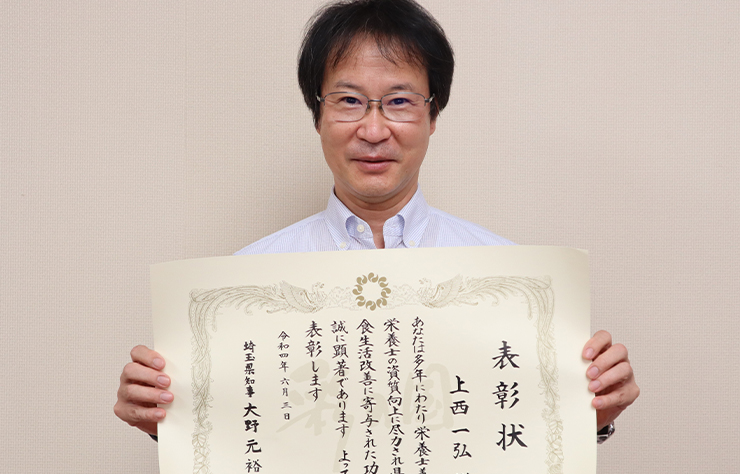 表彰状
上西一弘
あなたは多年にわたり栄養士養
栄養士の資質向上に尽力され県
食生活改善に寄与された功
誠に顕著であります よって
表彰します
令和四年六月三日
埼玉県知事 大野元裕